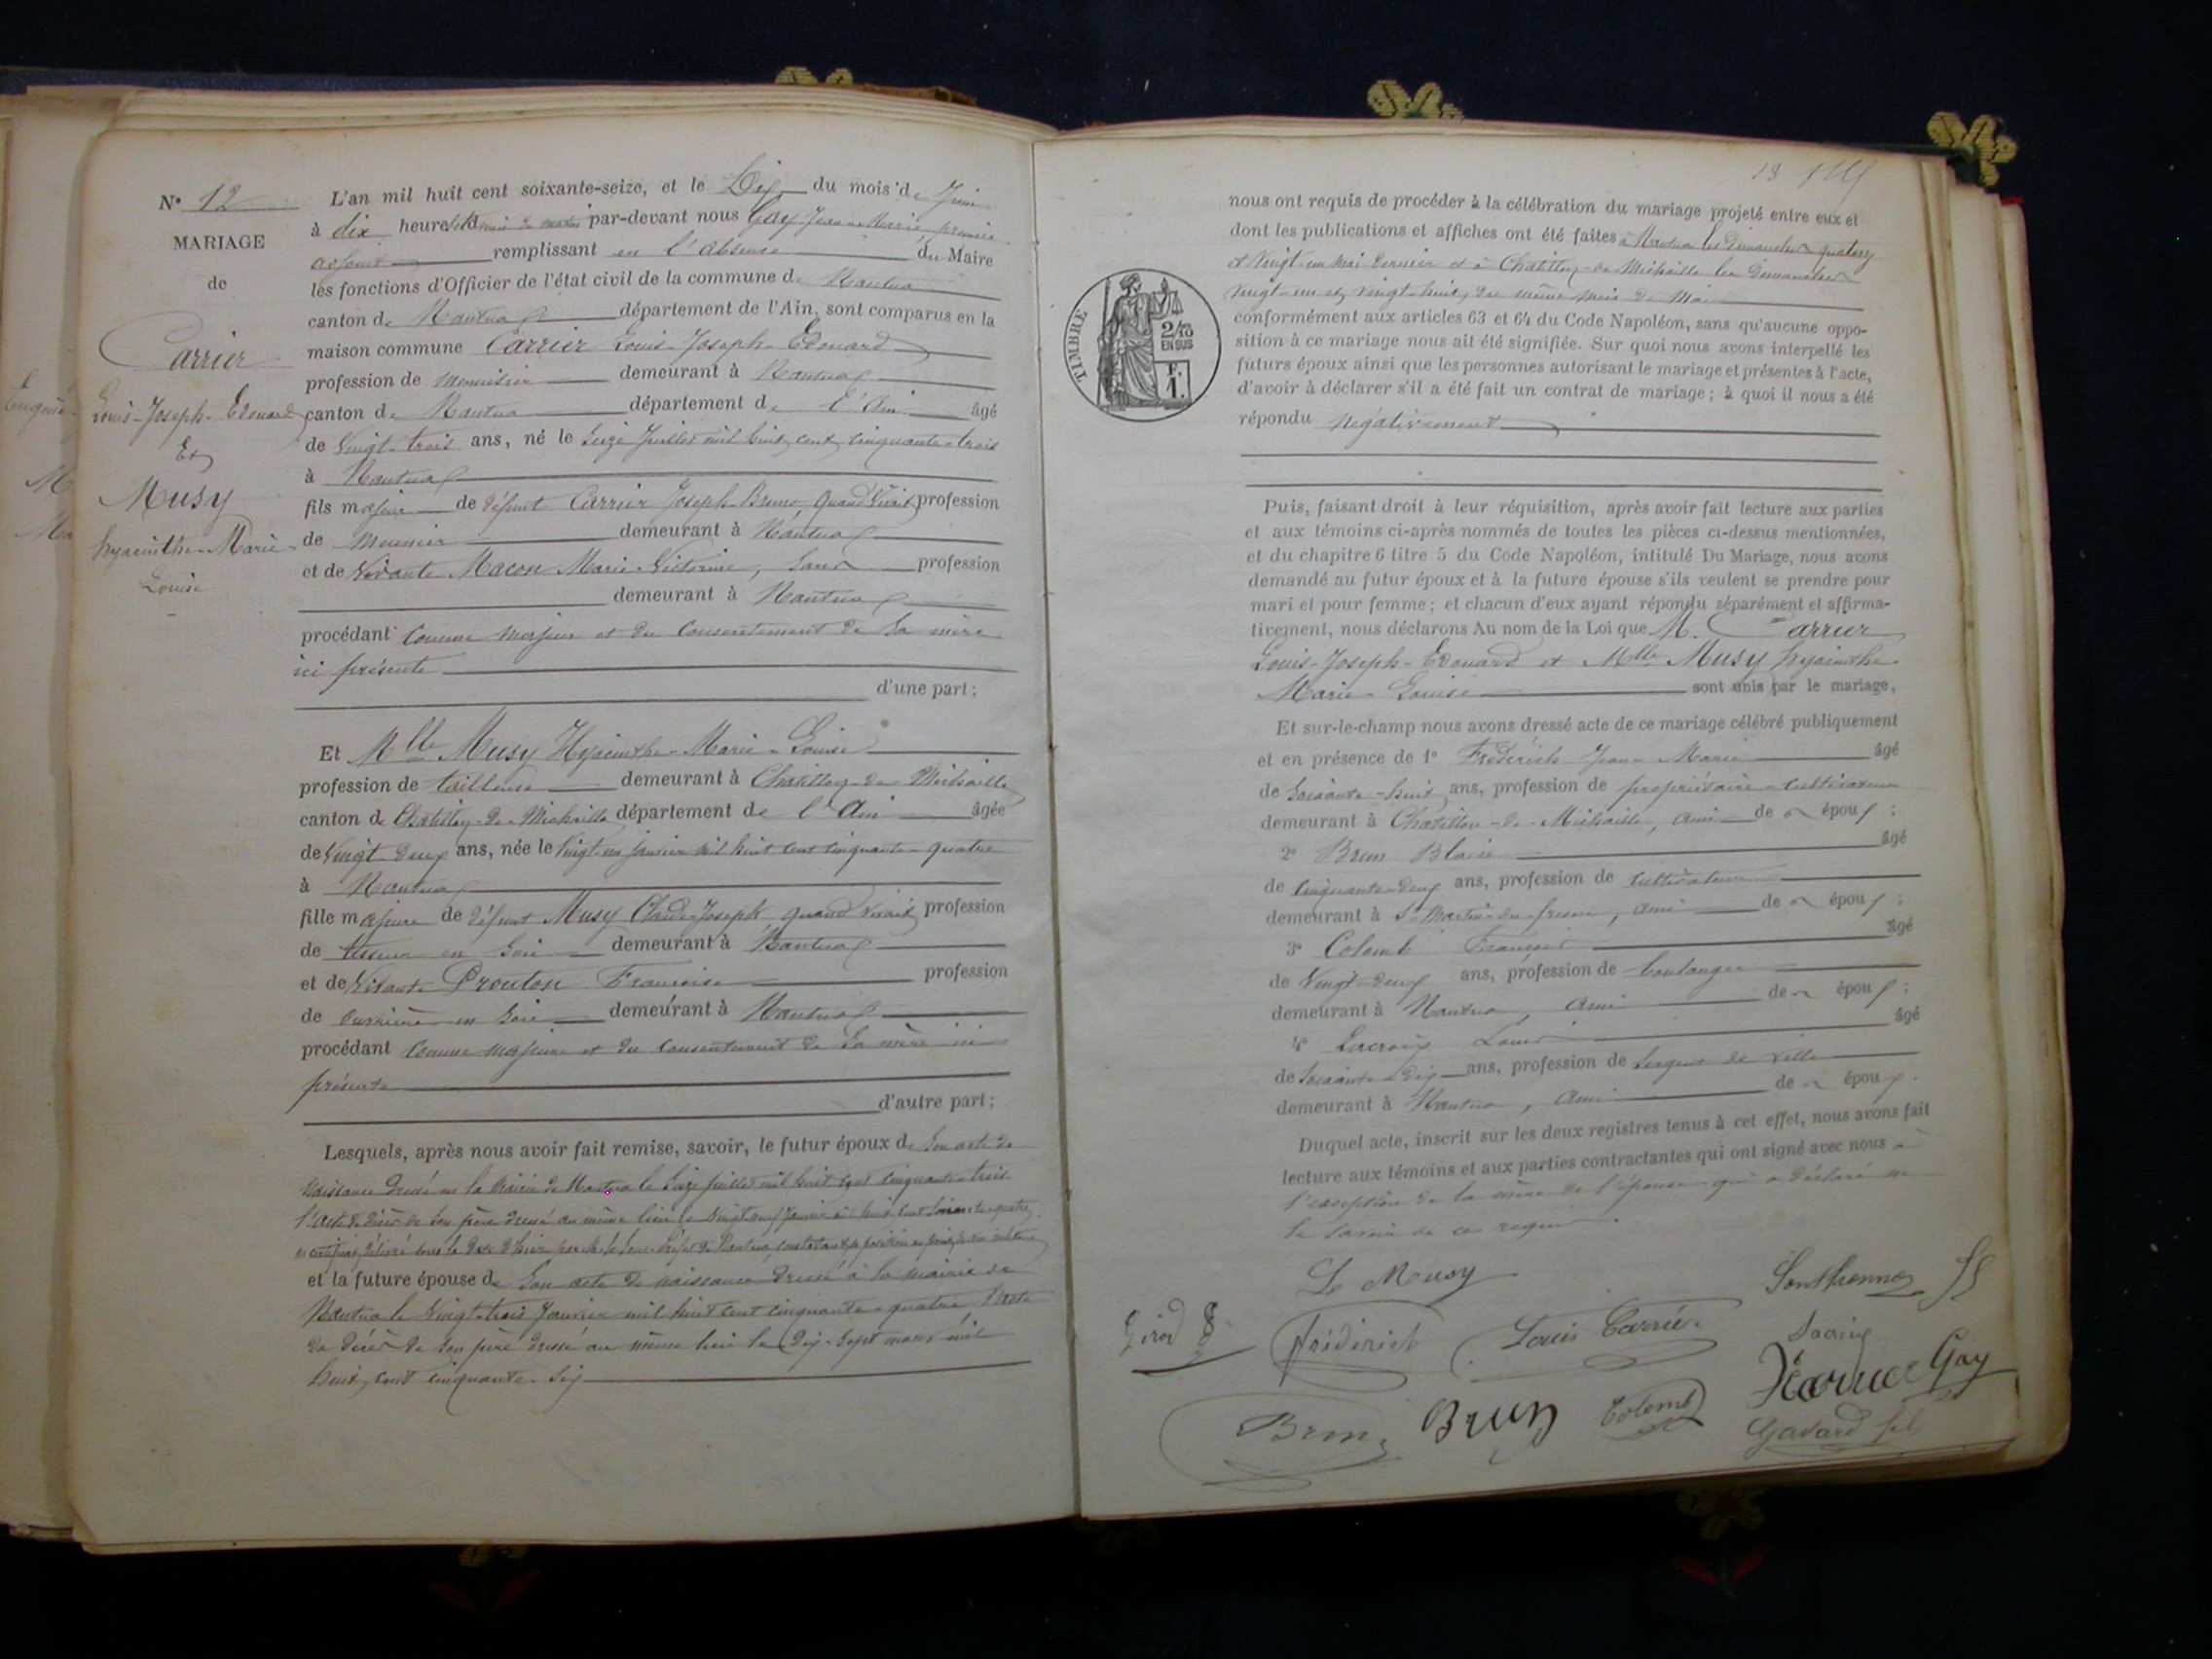 N° 12
MARIAGE
de
Carrier
Louis-Joseph-Edouard
Et
Musy
hyacinthe-Marie-
Louise
L'an mil huit cent soixante-seize, et le Dix du mois de Juin
à dix heures et demie du matin par-devant nous Gay Jean-Marie premier
adjoint remplissant en l'absence du Maire
les fonctions d'Officier de l'état civil de la commune de Nantua
canton de Nantua département de l'Ain, sont comparus en la
maison commune Carrier Louis-Joseph-Edouard
profession de menuisier demeurant à Nantua
canton de Nantua département de l'Ain âgé
de Vingt-trois ans, né le Seize Juillet mil huit cent cinquante-trois
à Nantua
fils majeur de défunt Carrier Joseph-Bruno, quand vivait profession
de meunier demeurant à Nantua
et de Vivante Macon Marie-Victorine, sans profession
demeurant à Nantua
procédant comme majeur et du consentement de sa mère
ici présente
d'une part;
Et Mlle Musy Hyacinthe-Marie-Louise
profession de tailleuse demeurant à Chatillon-de-Michaille
canton de Chatillon-de-Michaille département de l'Ain âgée
de Vingt-deux ans, née le Vingt-un janvier mil huit cent cinquante-quatre
à Nantua
fille majeure de défunt Musy Claude-Joseph quand vivait profession
de tisseur en soie demeurant à Nantua
et de Vivante Prouton Françoise profession
de ouvrière en soie demeurant à Nantua
procédant comme majeure et du consentement de sa mère ici
présente
d'autre part;
Lesquels, après nous avoir fait remise, savoir, le futur époux de Son acte de
naissance dressé en la Mairie de Nantua le Seize juillet mil huit cent cinquante-trois
l'acte de décès de son père dressé au même lieu le Vingt-neuf Janvier mil huit cent soixante-quatre
un certificat délivré sous la date d'hier par Mr le Sous-Préfet de Nantua, constatant sa position au point de vue militaire
et la future épouse de Son acte de naissance dressé à la mairie de
Nantua le Vingt-trois Janvier mil huit cent cinquante-quatre, l'acte
de décès de son père dressé au même lieu le Dix-Sept mars mil
huit cent cinquante-six
nous ont requis de procéder à la célébration du mariage projeté entre eux et
dont les publications et affiches ont été faites à Nantua les Dimanches quatorze
et Vingt-un Mai dernier et à Chatillon-de-Michaille les Dimanches
Vingt-un et Vingt-huit, du même mois de Mai
conformément aux articles 63 et 64 du Code Napoléon, sans qu'aucune oppo-
sition à ce mariage nous ait été signifiée. Sur quoi nous avons interpellé les
futurs époux ainsi que les personnes autorisant le mariage et présentes à l'acte,
d'avoir à déclarer s'il a été fait un contrat de mariage; à quoi il nous a été
répondu négativement
TIMBRE
2/10
EN SUS
F.
1.
Puis, faisant droit à leur réquisition, après avoir fait lecture aux parties
et aux témoins ci-après nommés de toutes les pièces ci-dessus mentionnées,
et du chapitre 6 titre 5 du Code Napoléon, intitulé Du Mariage, nous avons
demandé au futur époux et à la future épouse s'ils veulent se prendre pour
mari et pour femme; et chacun d'eux ayant répondu séparément et affirma-
tivement, nous déclarons Au nom de la Loi que M. Carrier
Louis-Joseph-Edouard et Mlle Musy hyacinthe
Marie-Louise sont unis par le mariage,
Et sur-le-champ nous avons dressé acte de ce mariage célébré publiquement
et en présence de 1° Fréderich Jean-Marie âgé
de Soixante-huit ans, profession de propriétaire-cultivateur
demeurant à Chatillon-de-Michaille, ami de x époux;
2° Brun Blaise âgé
de Cinquante-deux ans, profession de Cultivateur
demeurant à St Martin-du-fresne, ami de x époux;
3° Colomb François âgé
de Vingt-deux ans, profession de boulanger
demeurant à Nantua, ami de x époux;
4° Lacroix Louis âgé
de Soixante-Dix ans, profession de Sergent de Ville
demeurant à Nantua, ami de x époux.
Duquel acte, inscrit sur les deux registres tenus à cet effet, nous avons fait
lecture aux témoins et aux parties contractantes qui ont signé avec nous à
l'exception de la mère de l'épouse qui a déclaré ne
le savoir de ce requis.
Le Musy
Sonthonnax
Girod
Fréderich
Louis Carrier
Lacroix
Gay
Brun
Brun
Colomb
Gavard fils